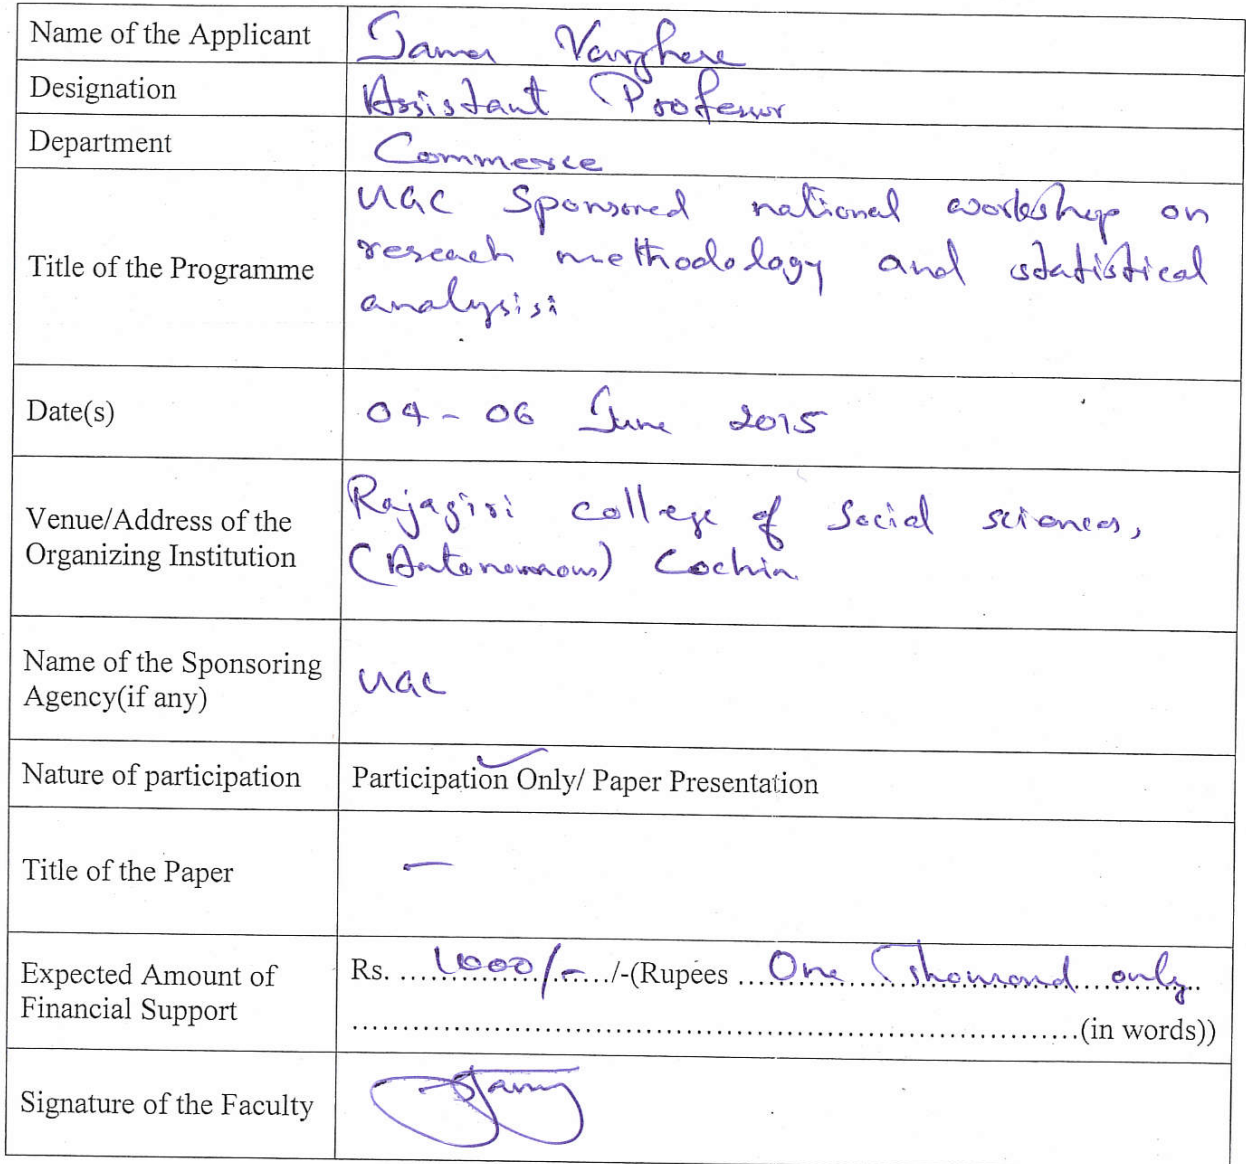 Name of the Applicant James Varghese
Designation Assistant Professor
Department Commerce
Title of the Programme
UGC Sponsored national workshop on
reseach methodology and statistical
analysis:
Date(s) 04 - 06 June 2015
Venue/Address of the
Organizing Institution
Rajagiri college of Social sciences,
(Autonomous) Cochin.
Name of the Sponsoring
Agency(if any)
UGC
Nature of participation Participation Only/ Paper Presentation
Title of the Paper –
Expected Amount of
Financial Support
Rs. ....1000/-..../-(Rupees ...One Thousand only..
..............................................................(in words))
Signature of the Faculty